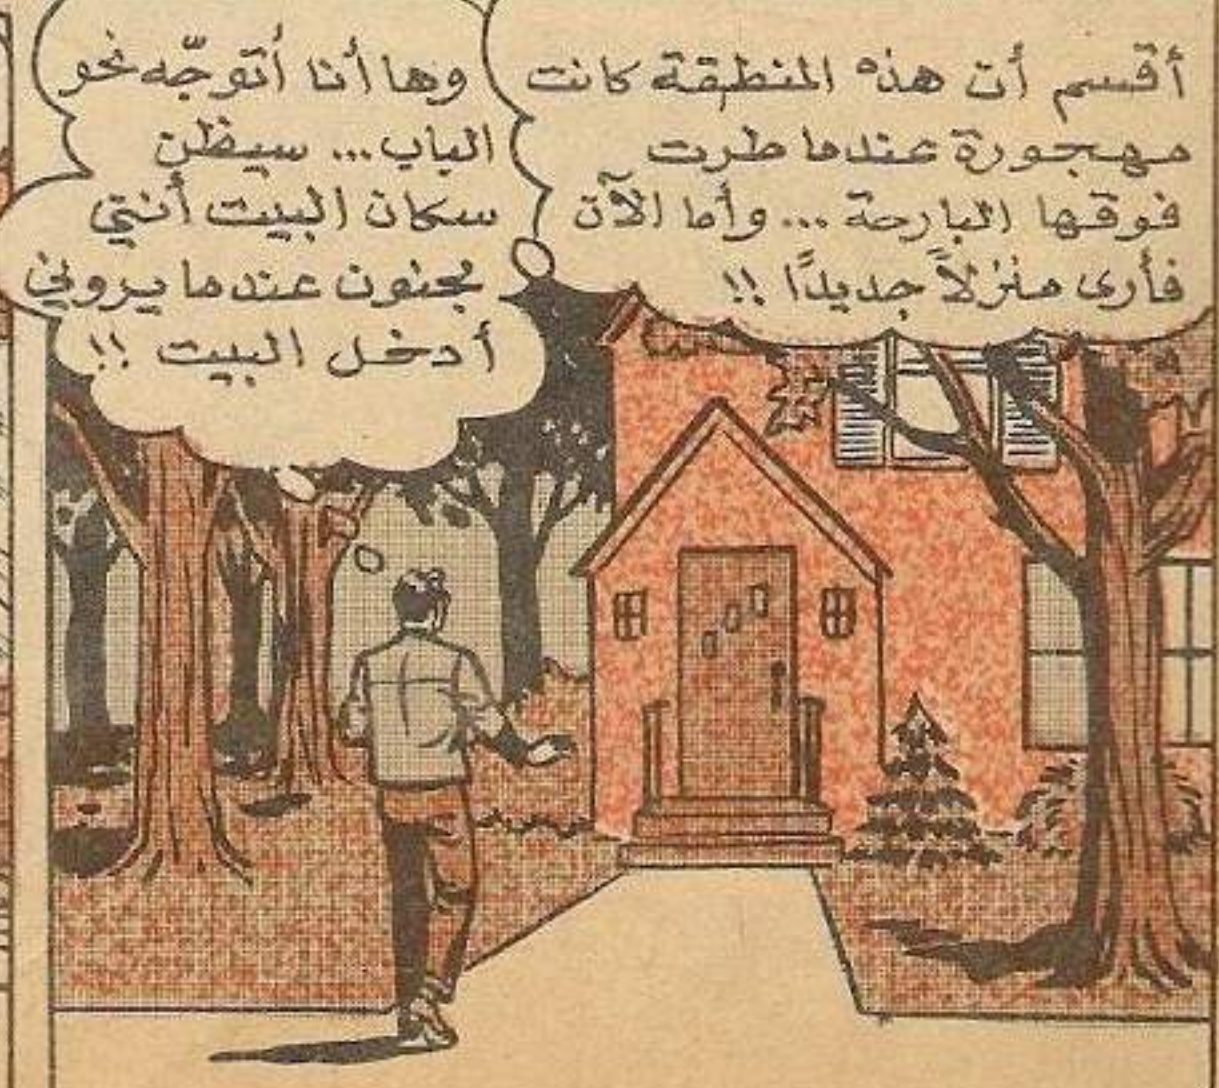 أقسم أن هذه المنطقة كانت
مهجورة عندما طرت
فوقها البارحة ... وأما الآن
فأرى منزلاً جديدًا !!
وها أنا أتوجّه نحو
الباب ... سيظن
سكان البيت أنني
مجنون عندما يروني
أدخل البيت !!